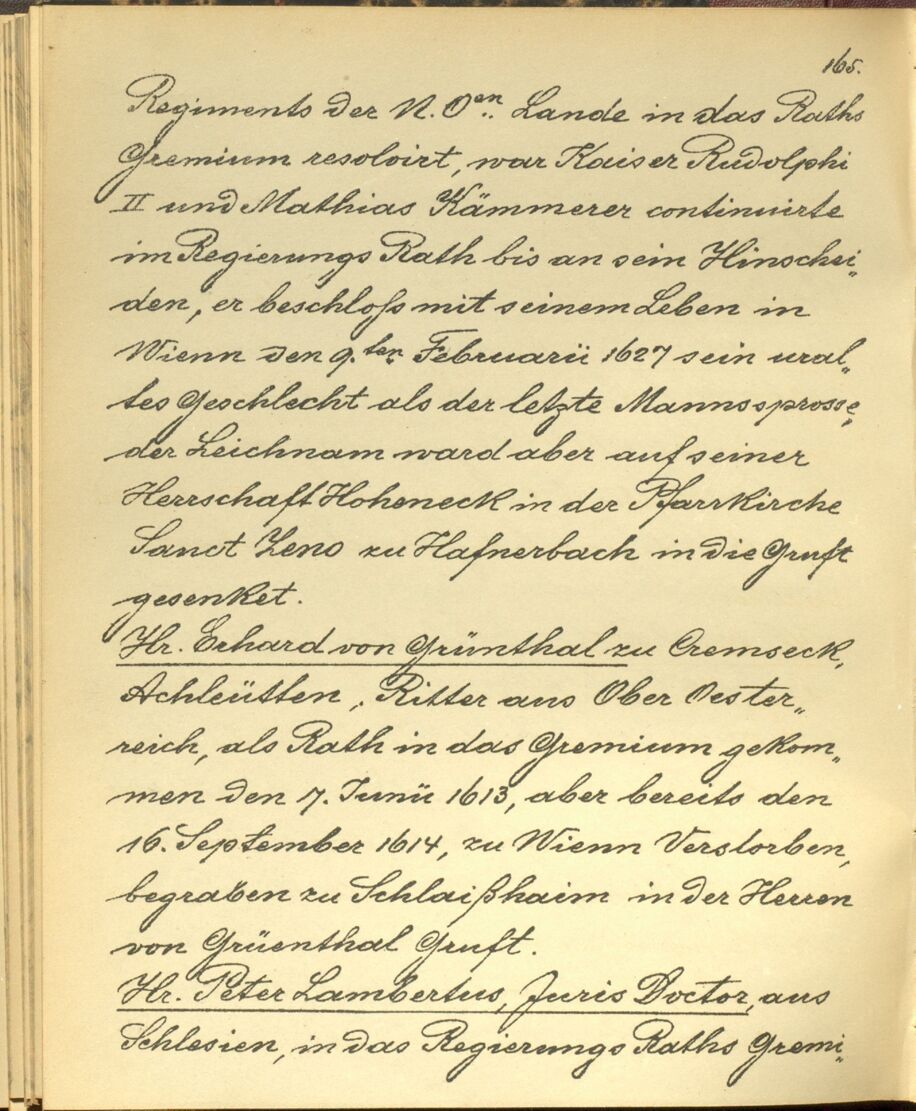 165.
Regiments der N. Oen. Lande in das Raths
Gremium resolvirt, war Kaiser Rudolphi
II und Mathias Kämmerer continuirte
im Regierungs Rath bis an sein Hinschei„
den, er beschloss mit seinem Leben in
Wienn den 9.ten Februarii 1627 sein ural„
tes Geschlecht als der letzte Mannssprosse,
der Leichnam ward aber auf seiner
Herrschaft Hoheneck in der Pfarrkirche
Sanct Zeno zu Hafnerbach in die Gruft
gesenket.
Hr. Erhard von Grünthal zu Cremseck,
Achleütten, Ritter aus Ober Oester„
reich, als Rath in das Gremium gekom„
men den 7. Junii 1613, aber bereits den
16. September 1614, zu Wienn Verstorben,
begraben zu Schlaißhaim in der Herren
von Grüenthal Gruft.
Hr. Peter Lambertus, Juris Doctor, aus
Schlesien, in das Regierungs Raths Gremi„